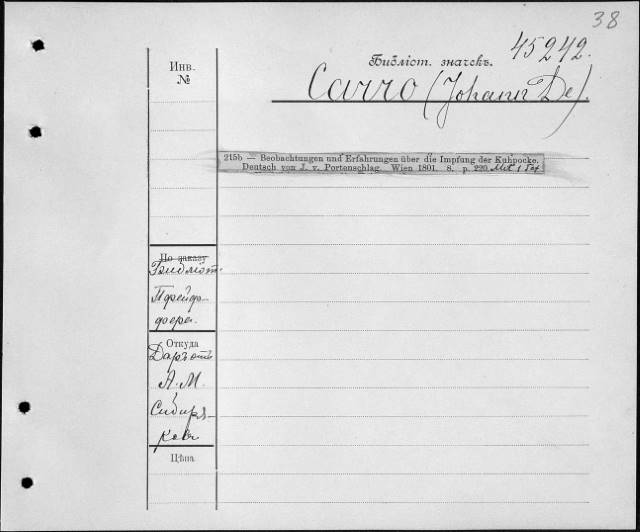 38
45242.
Библіот. значекъ.
Carro (Johann De).
Инв.
№
215b — Beobachtungen und Erfahrungen über die Impfung der Kuhpocke.
Deutsch von J. v. Portenschlag. Wien 1801. 8. p. 220 Mit 1 Taf
По заказу
Библіот.
Откуда
Даръ отъ
А. М.
Сибиря-
кова
Цѣна